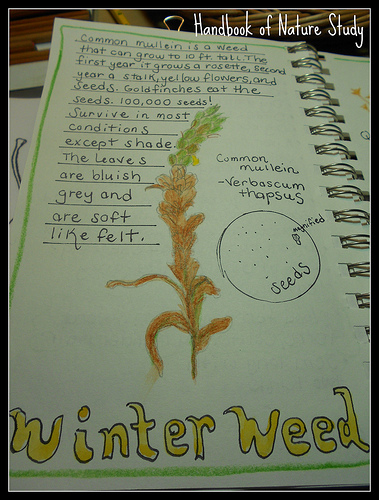 Handbook of Nature Study
Common mullein is a weed
that can grow to 10 ft. tall. The
first year it grows a rosette, second
year a stalk, yellow flowers, and
seeds. Goldfinches eat the
seeds. 100,000 seeds!
Survive in most
conditions
except shade.
The leaves
are bluish
grey and
are soft
like felt.
Common
mullein
-Verbascum
thapsus
magnified
seeds
Winter Weed